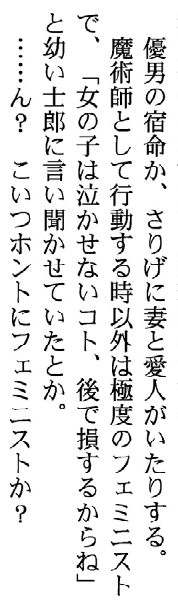 優男の宿命か、さりげに妻と愛人がいたりする。
魔術師として行動する時以外は極度のフェミニスト
で、「女の子は泣かせないコト、後で損するからね」
と幼い士郎に言い聞かせていたとか。
……ん？　こいつホントにフェミニストか？